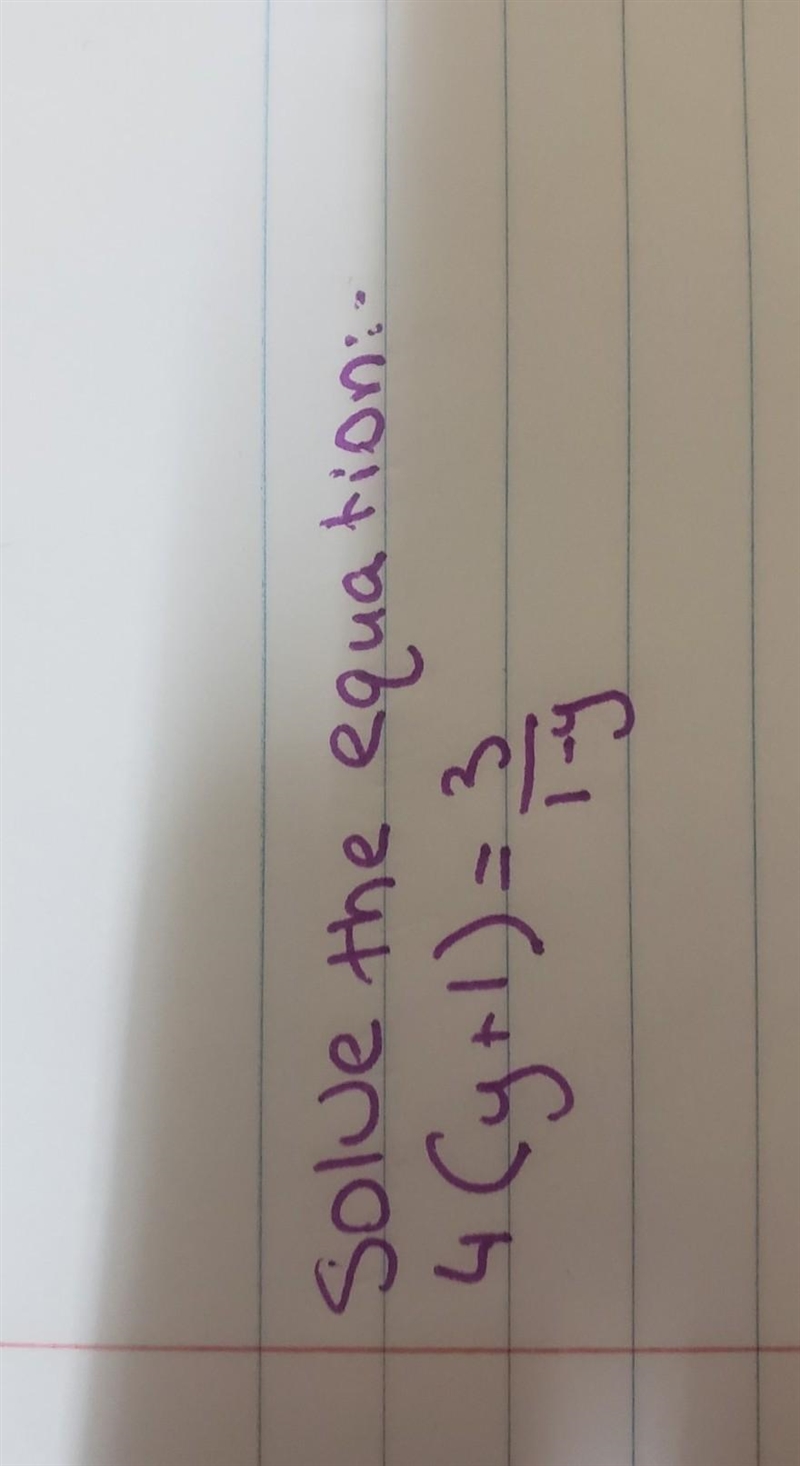 Solve the equation:-
4(y+1) = 3/(1-y)